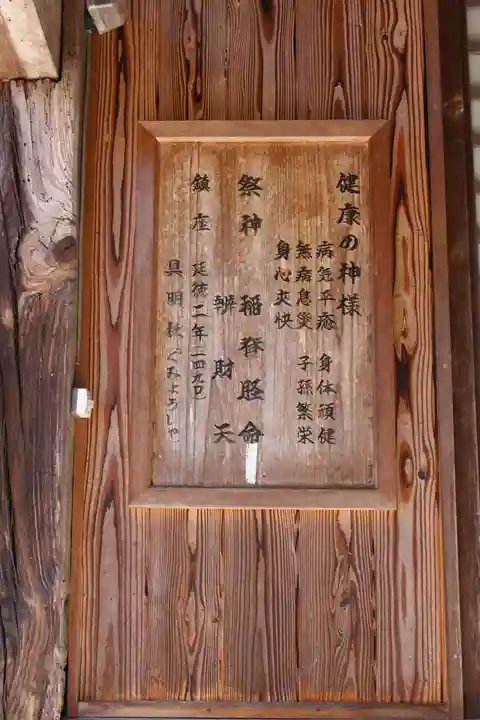 健康の神様
病気平癒 身体頑健
無病息災 子孫繁栄
身心爽快
祭神 稲脊脛命
辨財天
鎮座 延徳二年二四九〇
具明社ぐみょうしゃ